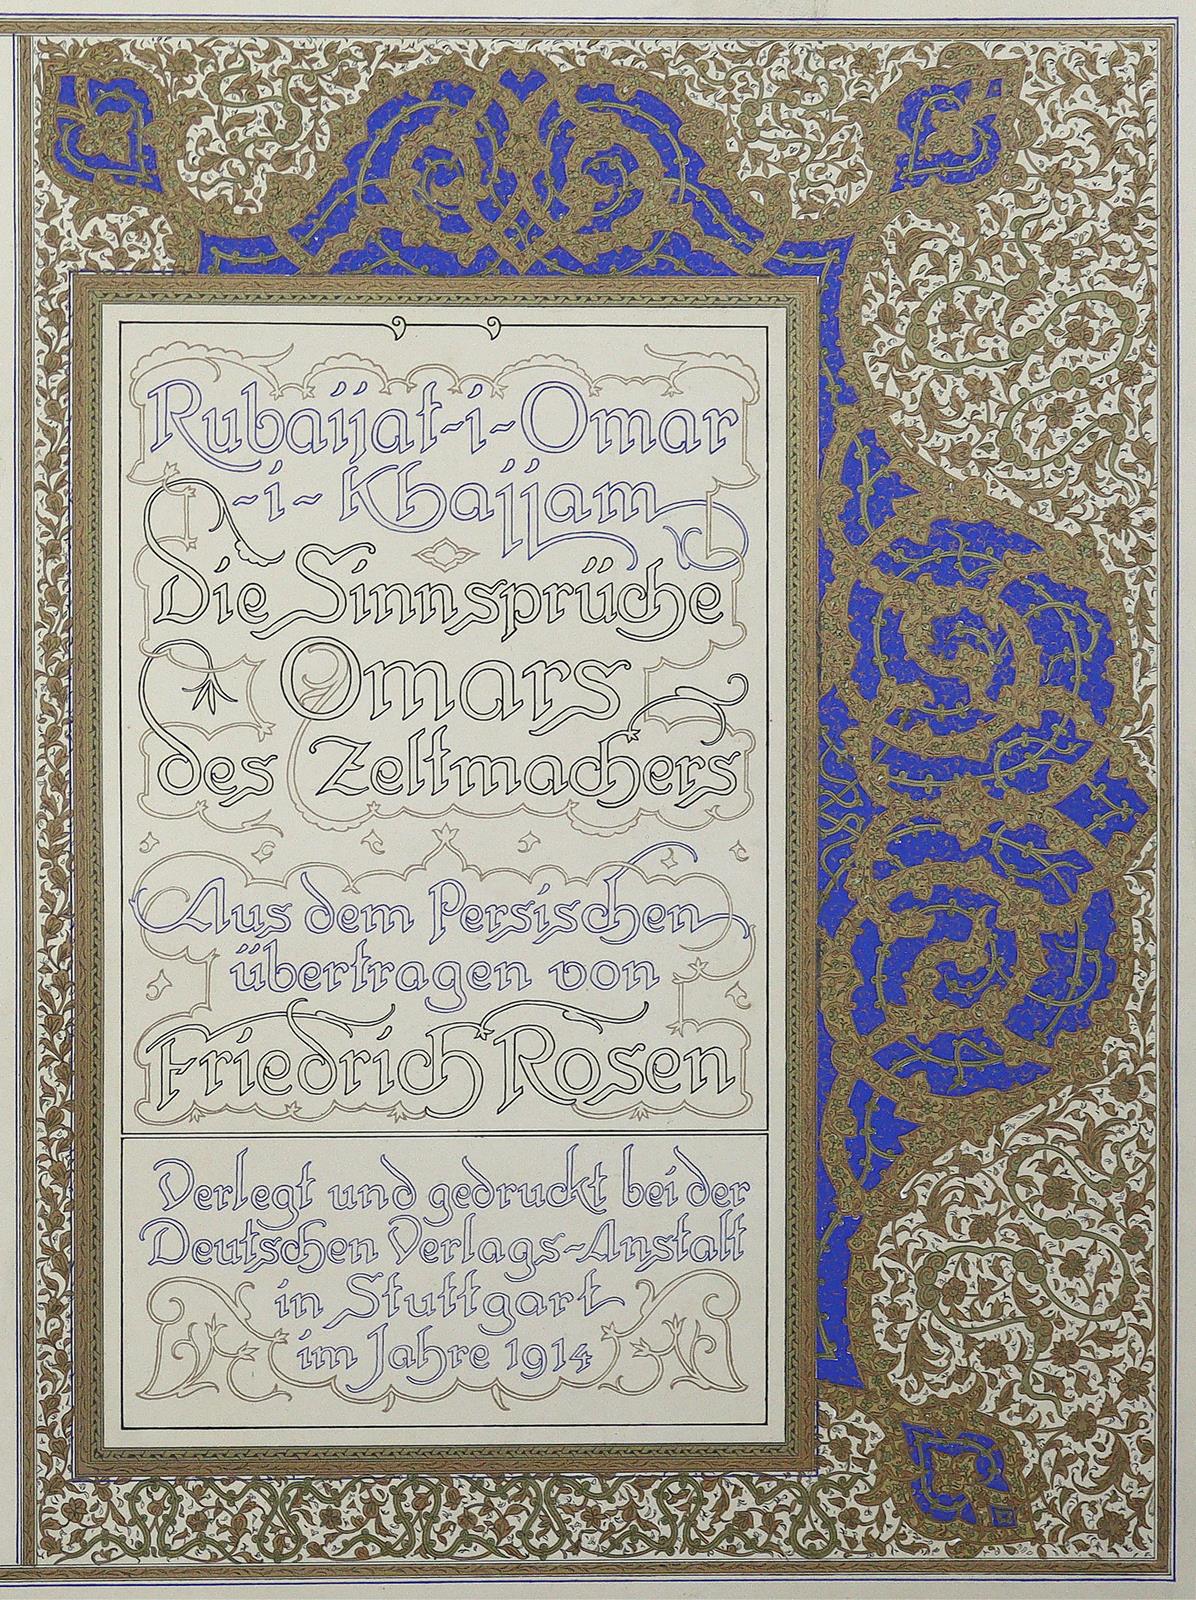 Rubaijat-i-Omar
-i-Khajjam
Die Sinnsprüche
Omars
des Zeltmachers
Aus dem Persischen
übertragen von
Friedrich Rosen
Verlegt und gedruckt bei der
Deutschen Verlags-Anstalt
in Stuttgart
im Jahre 1914